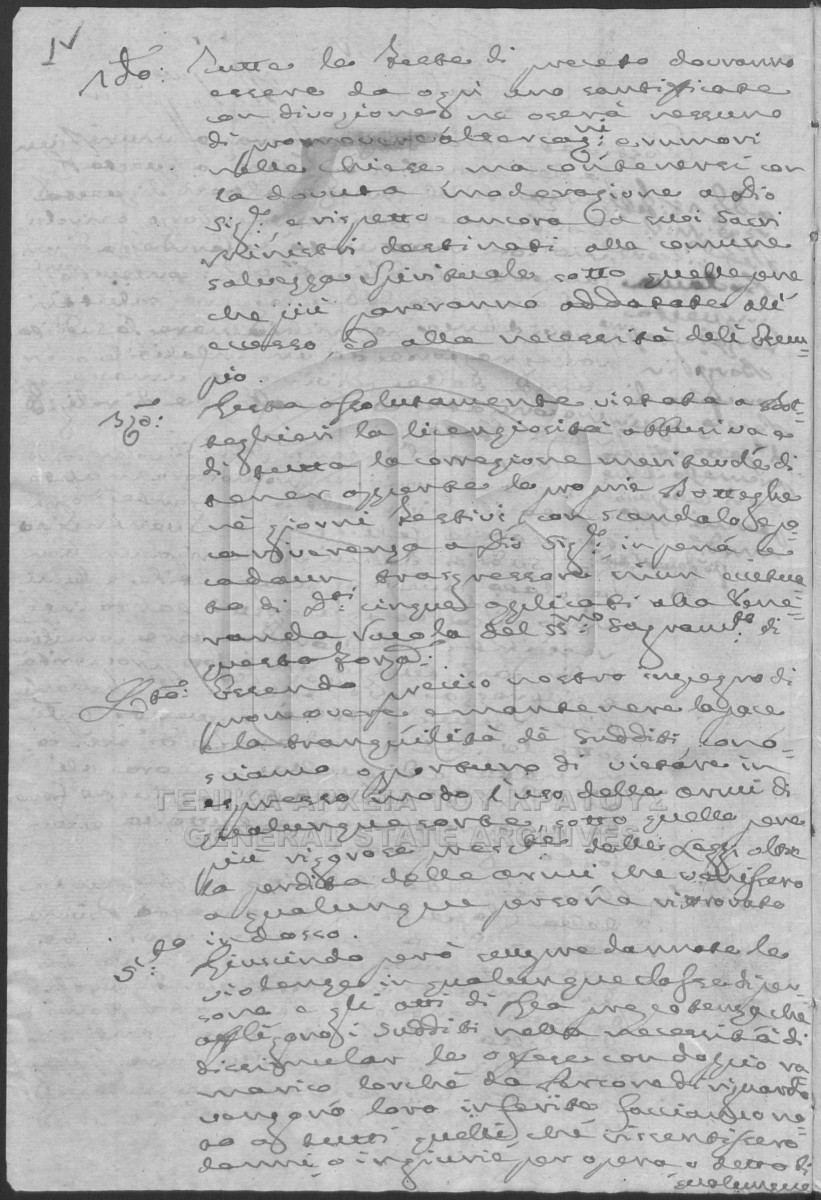 2do: Tutte le Feste di precetto dovranno
essere da ogni uno santificate
con divozione, ne oserà nessuno
di promovere altercazni: e rumori
nelle Chiese ma contenersi con
la dovuta moderazione a Dio
Sigr:, e rispetto ancora a suoi Sacri
Ministri destinati alla comune
salvezza Spirituale sotto quelle pene
che più pareranno addatate all'
ecesso, ed alla necessità dell' Esem-
pio.
3zo: Resta assolutamente vietata a Bot-
teghieri la licenziosità abbusiva e
di tutta la corregione meritevole di
tener apperte le proprie Botteghe
nè giorni Festivi con scandalo, e po-
ca riverenza a Dio Sigr: in pena a
cadaun trasgressore
di Dti: cinque applicati alla Vene-
randa Scola del SSmo: Sagramto: di
questa Forza.
4to: Essendo preciso nostro impegno di
promovere e mantenere la pace
e la tranquilità dè Sudditi, cono-
sciamo opportuno di vietare in
espresso modo l'uso delle armi di
qualunque sorte, sotto quelle pene
più rigorose prescte dalle Leggi oltre
la perdita delle armi che venissero
a qualunque persona ritrovate
in dosso.
5to: Riuscindo però sempre dannate le
violenze in qualunque classe di per-
sone e gli atti di prepotenza che
affligono i Sudditi nella necessità di
dissimular le offese con doppio ra-
marico lorchè da Persone di riguardo
vengono loro inferite facciamo no-
to a tutti quelli che rissentissero
danni, o ingiurie per opera, o detto di
qualunque
ΓΕΝΙΚΑ ΑΡΧΕΙΑ ΤΟΥ ΚΡΑΤΟΥΣ
GENERAL STATE ARCHIVES